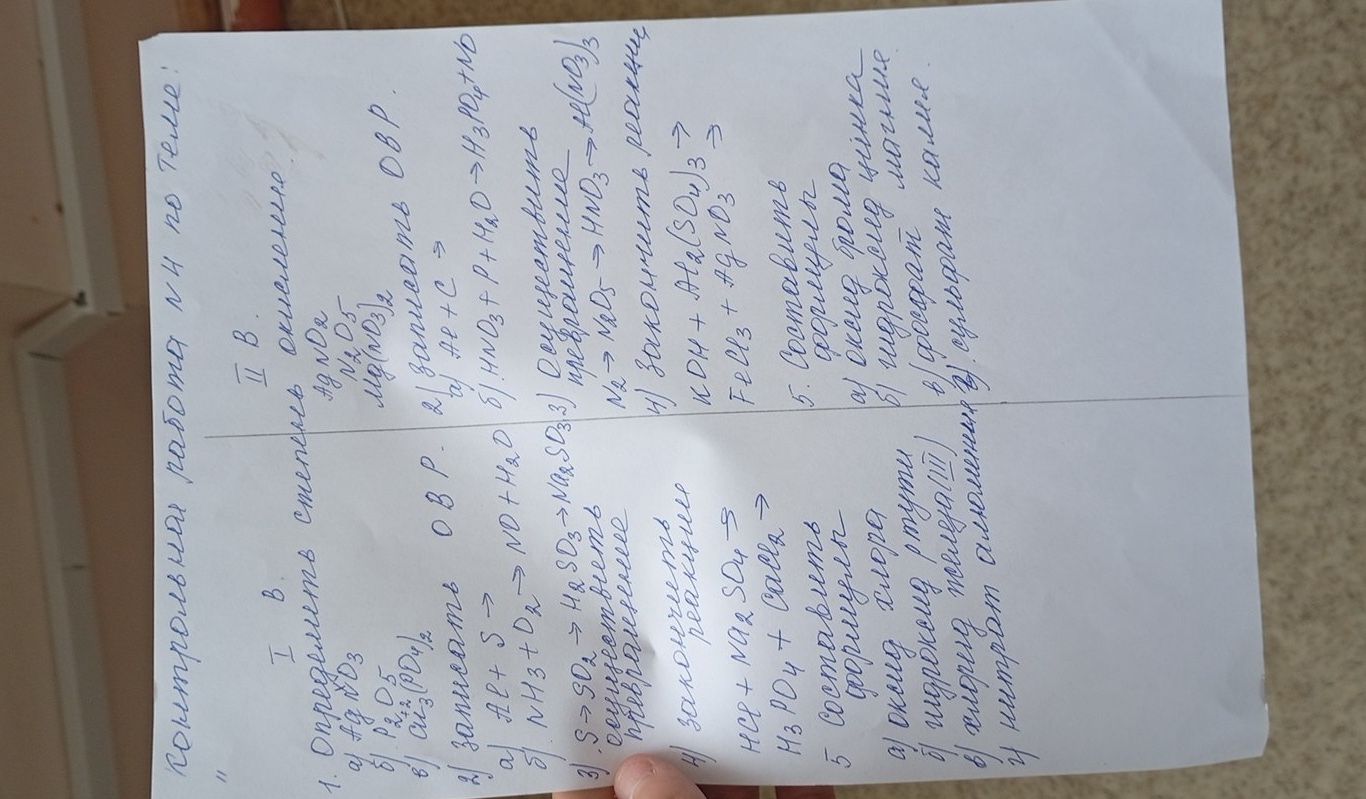 Контрольная работа N 4 по теме:
"
I В.
1. Определить степень окисления.
а) AgNO3
б) P2O5
в) Cu3(PO4)2
2) Записать ОВР.
а) Al + S →
б) NH3 + O2 → NO + H2O
3) S → SO2 → H2SO3 → Na2SO3
осуществить
превращение
4) закончить
реакции
HCl + Na2SO4 →
H3PO4 + CaCl2 →
5 Составить
формулы
а) оксид хлора
б) гидроксид ртути
в) хлорид железа (III)
г) нитрат алюминия
II В.
AgNO2
N2O5
Mg(NO3)2
2) Записать ОВР.
а) Al + C →
б) HNO3 + P + H2O → H3PO4 + NO
3) Осуществить
превращение
N2 → N2O5 → HNO3 → Al(NO3)3
4) Закончить реакции
KOH + Al2(SO4)3 →
FeCl3 + AgNO3 →
5. Составить
формулы
а) оксид брома
б) гидроксид цинка
в) фосфат магния.
г) сульфат калия.